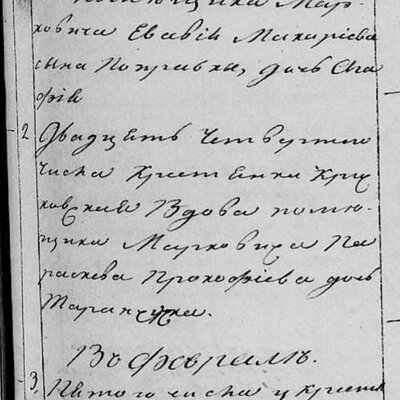 помющика Мар-
ковича Евавiи Макарiева
сына Поправки, дочь Ага
фiя
2 Двадцеть четвертого
числа Крестьянка Крух
овская Вдова помю-
щика Марковича Па
раскева Прокофiева дочь
Таранухка.
Въ Феврале.
3. Пятого числа у Крест